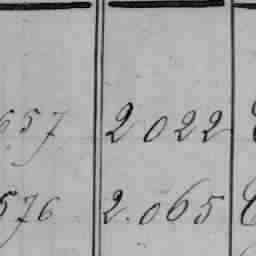 657 2022
576 2.065